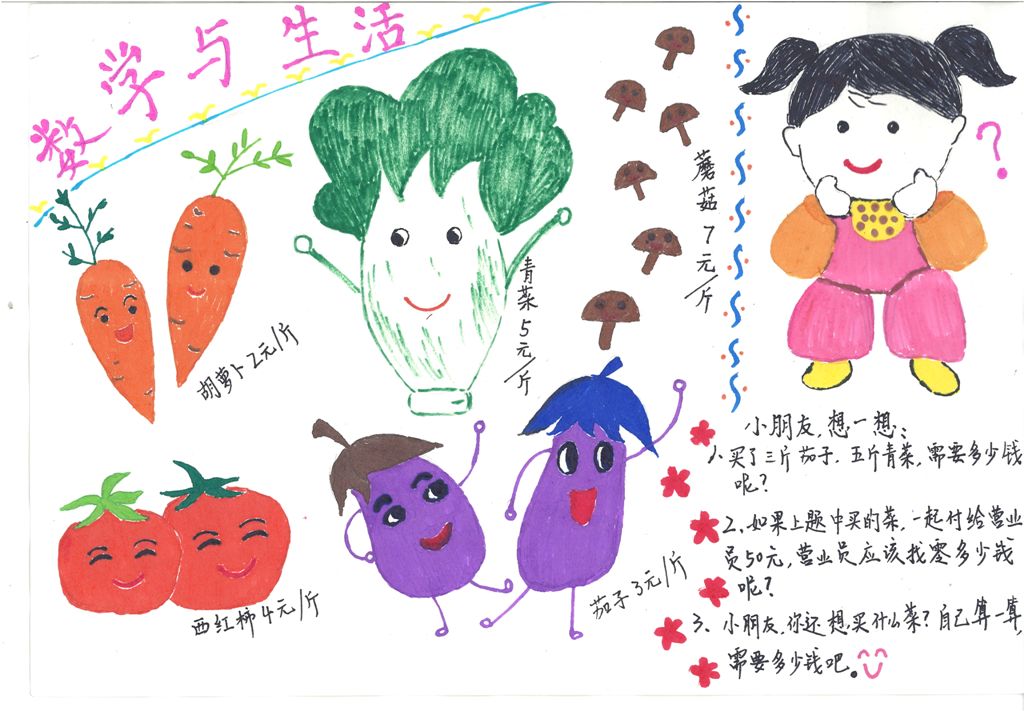 数学与生活
胡萝卜2元/斤
青菜5元/斤
蘑菇7元/斤
西红柿4元/斤
茄子3元/斤
?
小朋友,想一想:
1、买了三斤茄子.五斤青菜,需要多少钱
呢?
2、如果上题中买的菜,一起付给营业
员50元,营业员应该找零多少钱
呢?
3、小朋友,你还想买什么菜?自己算一算,
需要多少钱吧。